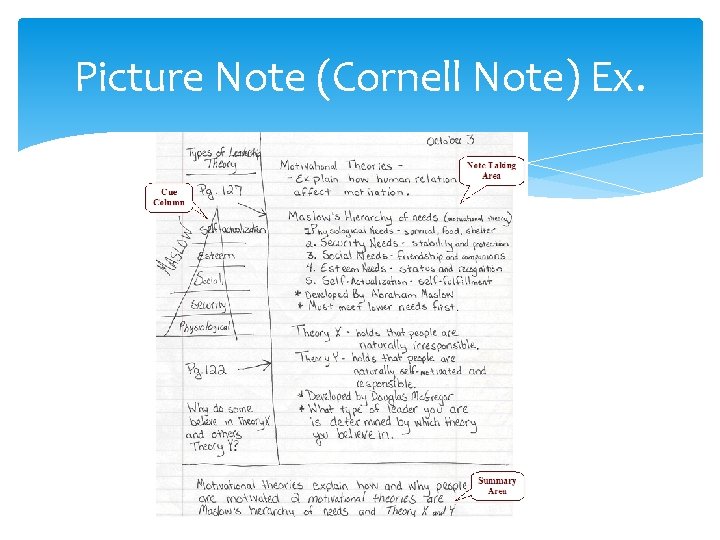 Picture Note (Cornell Note) Ex.
October 3
Types of Leadership
Theory
Motivational Theories -
- Explain how human relation
affect motivation.
Note Taking
Area
Cue
Column
Pg. 127
MASLOW
Self Actualization
Esteem
Social
Security
Physiological
Maslow's Hierarchy of needs (motivational theory)
1. Physiological Needs - survival, food, shelter
2. Security Needs - stability and protection
3. Social Needs - friendship and companions
4. Esteem Needs - status and recognition
5. Self-Actualization - self-fulfillment
* Developed By Abraham Maslow
* Must meet lower needs first.
Theory X - holds that people are
naturally irresponsible.
Theory Y - holds that people are
naturally self-motivated and
responsible.
* Developed by Douglas McGregor
* What type of leader you are
is determined by which theory
you believe in.
Pg. 122
Why do some
believe in Theory X
and others
Theory Y?
Summary
Area
Motivational theories explain how and why people
are motivated 2 motivational theories are
Maslow's hierarchy of needs and Theory X and Y